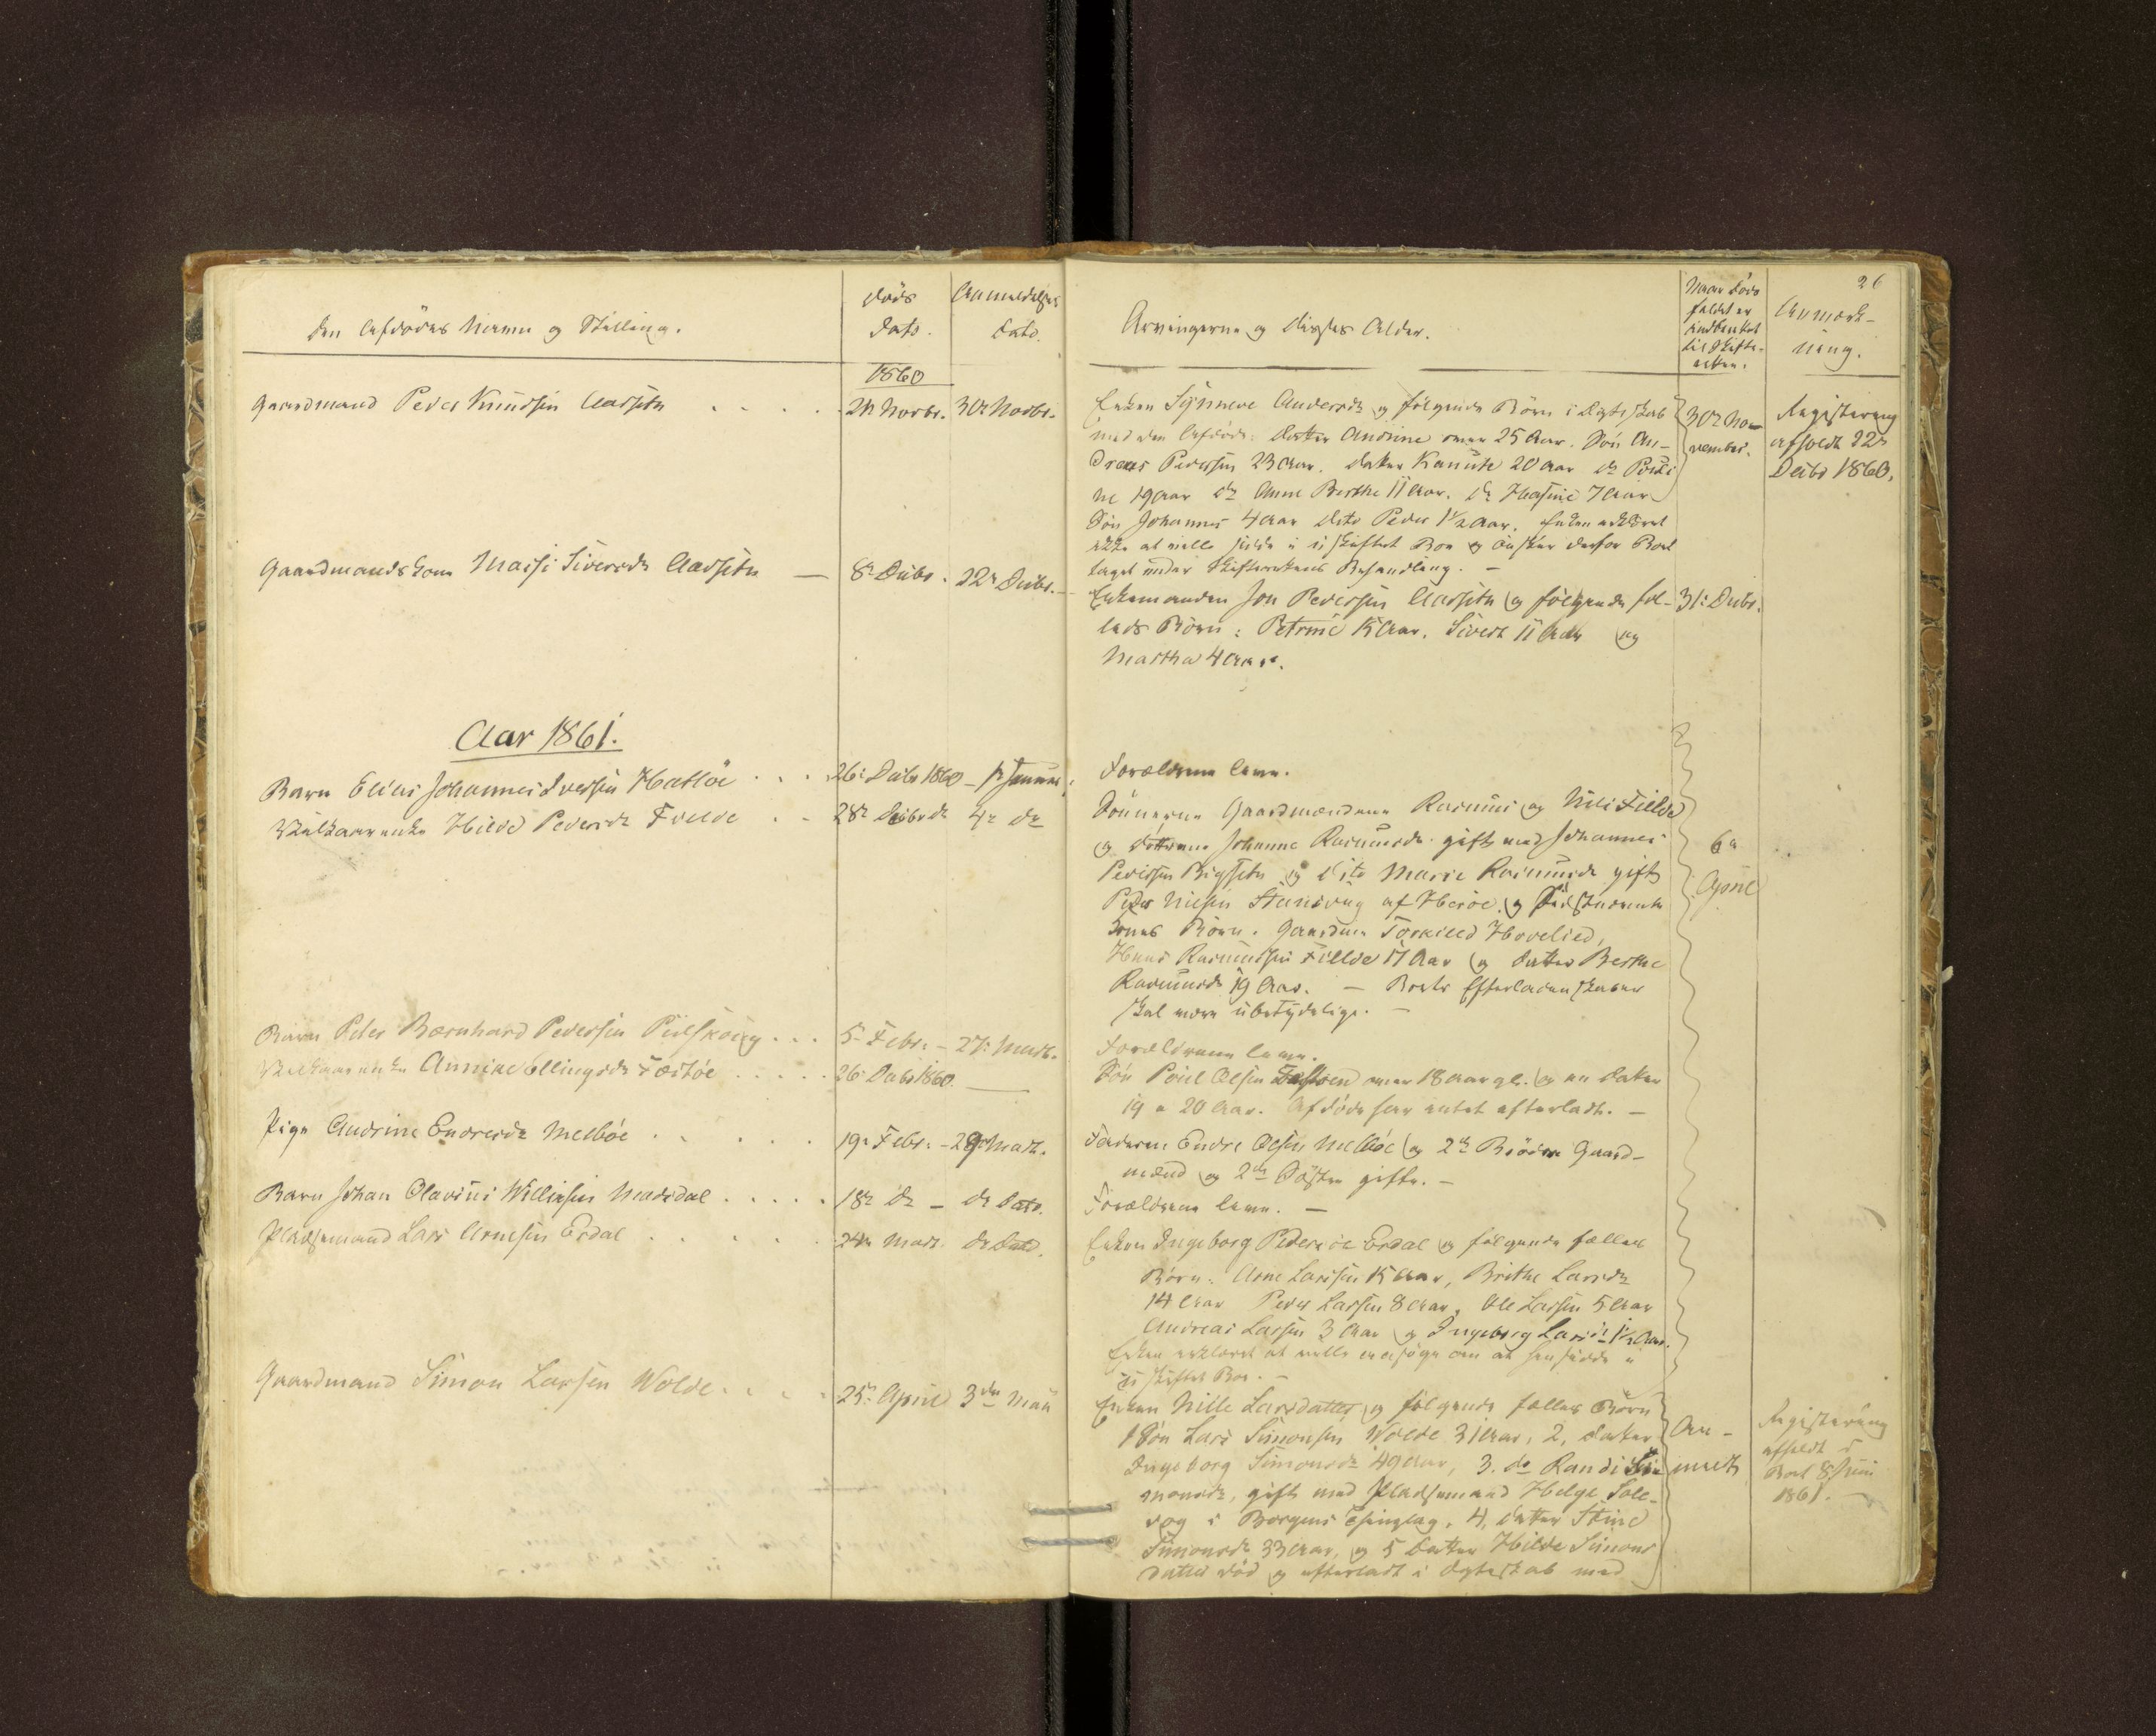 26
Den Afdødes Navn og Stilling.
Døds
Dato.
Anmeldelses
Dato.
Arvingerne og disses Alder.
Naar Døds
faldet er
indberettet
til Skifte-
retten.
Anmærk-
ning.
1860
Gaardmand Peder Knudsen Aarseth
24 Novbr. 30te Novbr.
Enken Synneve Andersdr og følgende Børn i Ægteskab
med den Afdøde: Datter Andrine over 25 Aar. Søn An-
dreas Pedersen 23 Aar. Datter Kanute 20 Aar do Pouli
ne 19 Aar do Anne Berthe 11 Aar. do Hasine 7 Aar
Søn Johannes 4 Aar dito Peder 1½ Aar. Enken erklæret
ikke at ville sidde i uskiftet Boe og ønsker derfor Boet
taget under Skifterettens Behandling. —
30te No-
vember.
Registrering
afholdt 22de
Decbr 1860.
Gaardmandskone Marji Siversdr Aarseth —
8de Decbr. 22de Decbr. —
Enkemanden Jon Pedersen Aarseth og følgende fæl-
leds Børn: Petrine 15 Aar. Sivert 11 Aar og
Martha 4 Aar.
31: Decbr.
Aar 1861.
Barn Elias Johannes Iversen Hatløe
26: Decbr 1860 — Januar
Forældrene leve.
Vilkaarenke Hilde Pedersdr Fielde
28de Decbr do 4de do
Sønnerne Gaardmændene Rasmus og Nils Fielde
og døttrene Johanne Rasmusdr gift med Johannes
Pedersen Rigseth og dito Marie Rasmusdr gift
Peder Nielsen af Herøe og
Søns Børn. Gaardm. Torkild Hovelied,
Hans Rasmussen Fielde 17 Aar og datter Berthe
Rasmusdr 19 Aar. — Boets Efterladenskaber
skal være ubetydelige. —
6te
April
Barn Peder Bernhard Pedersen Pilskoug
5 Febr. — 27: Marts.
Forældrene leve.
Vilkaarenke Annike Ellingsdr Festøe
26: Decbr 1860. —
Søn Poul Olsen Festøen over 18 Aar gl. og en Datter
19 a 20 Aar. Afdøde har intet efterladt. —
Pige Andrine Endresdr Melbøe
19de Febr. — 29 Marts.
Faderen Endre Olsen Melbøe og 2de Brødre Gaard-
mænd og 2de Søstre gifte. —
Barn Johan Olavius Williksen Mardal
18de do — do Dato.
Forældrene leve. —
Pladsemand Lars Arnesen Erdal
24de Marts do Dato.
Enken Ingeborg Pedersdr Erdal og følgende fælles
Børn: Arne Larsen 15 Aar, Brithe Larsdr
14 Aar Peder Larsen 8 Aar, Ole Larsen 5 Aar
Andreas Larsen 3 Aar og Ingeborg Larsdr 1½ Aar.
Enken erklæret at ville ansøge om at hensidde i
uskiftet Boe. —
Gaardmand Simon Larsen Wolde
25de April 3die Mai
Enken Nille Larsdatter og følgende fælles Børn
1 Søn Lars Simonsen Wolde 31 Aar, 2, Datter
Ingeborg Simonsdr 49 Aar, 3. do Randi Si-
monsdr, gift med Pladsemand Helge Sole-
vog i Borgens Thinglag, 4, datter Stine
Simonsdr 33 Aar, og 5 Datter Hilde Simons
datter død og efterladt i Ægteskab med
An-
meldt
Registrering
afholdt i
Boet 8 Juni
1861. —